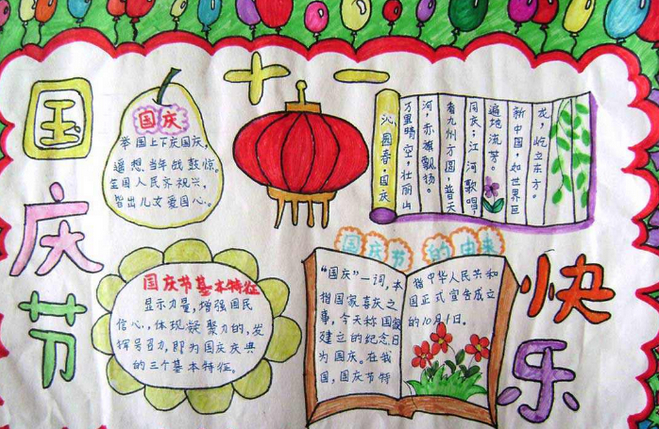 国庆节
十一
国庆
举国上下庆国庆，
遥想当年战鼓惊。
全国人民齐祝兴，
皆出儿女爱国心。
沁园春·国庆
万里晴空，壮丽山
河，赤旗飘扬。
看九州方圆，普天
同庆；江河歌唱，
遍地流芳。
新中国，如世界巨
龙，屹立东方。
国庆节基本特征
显示力量，增强国民
信心，体现凝聚力的，发
挥号召力，即为国庆庆典
的三个基本特征。
国庆节的由来
“国庆”一词，本
指国家喜庆之
事，今天称国家
建立的纪念日
为国庆。在我
国，国庆节特
指中华人民共和
国正式宣告成立
的10月1日。
快乐